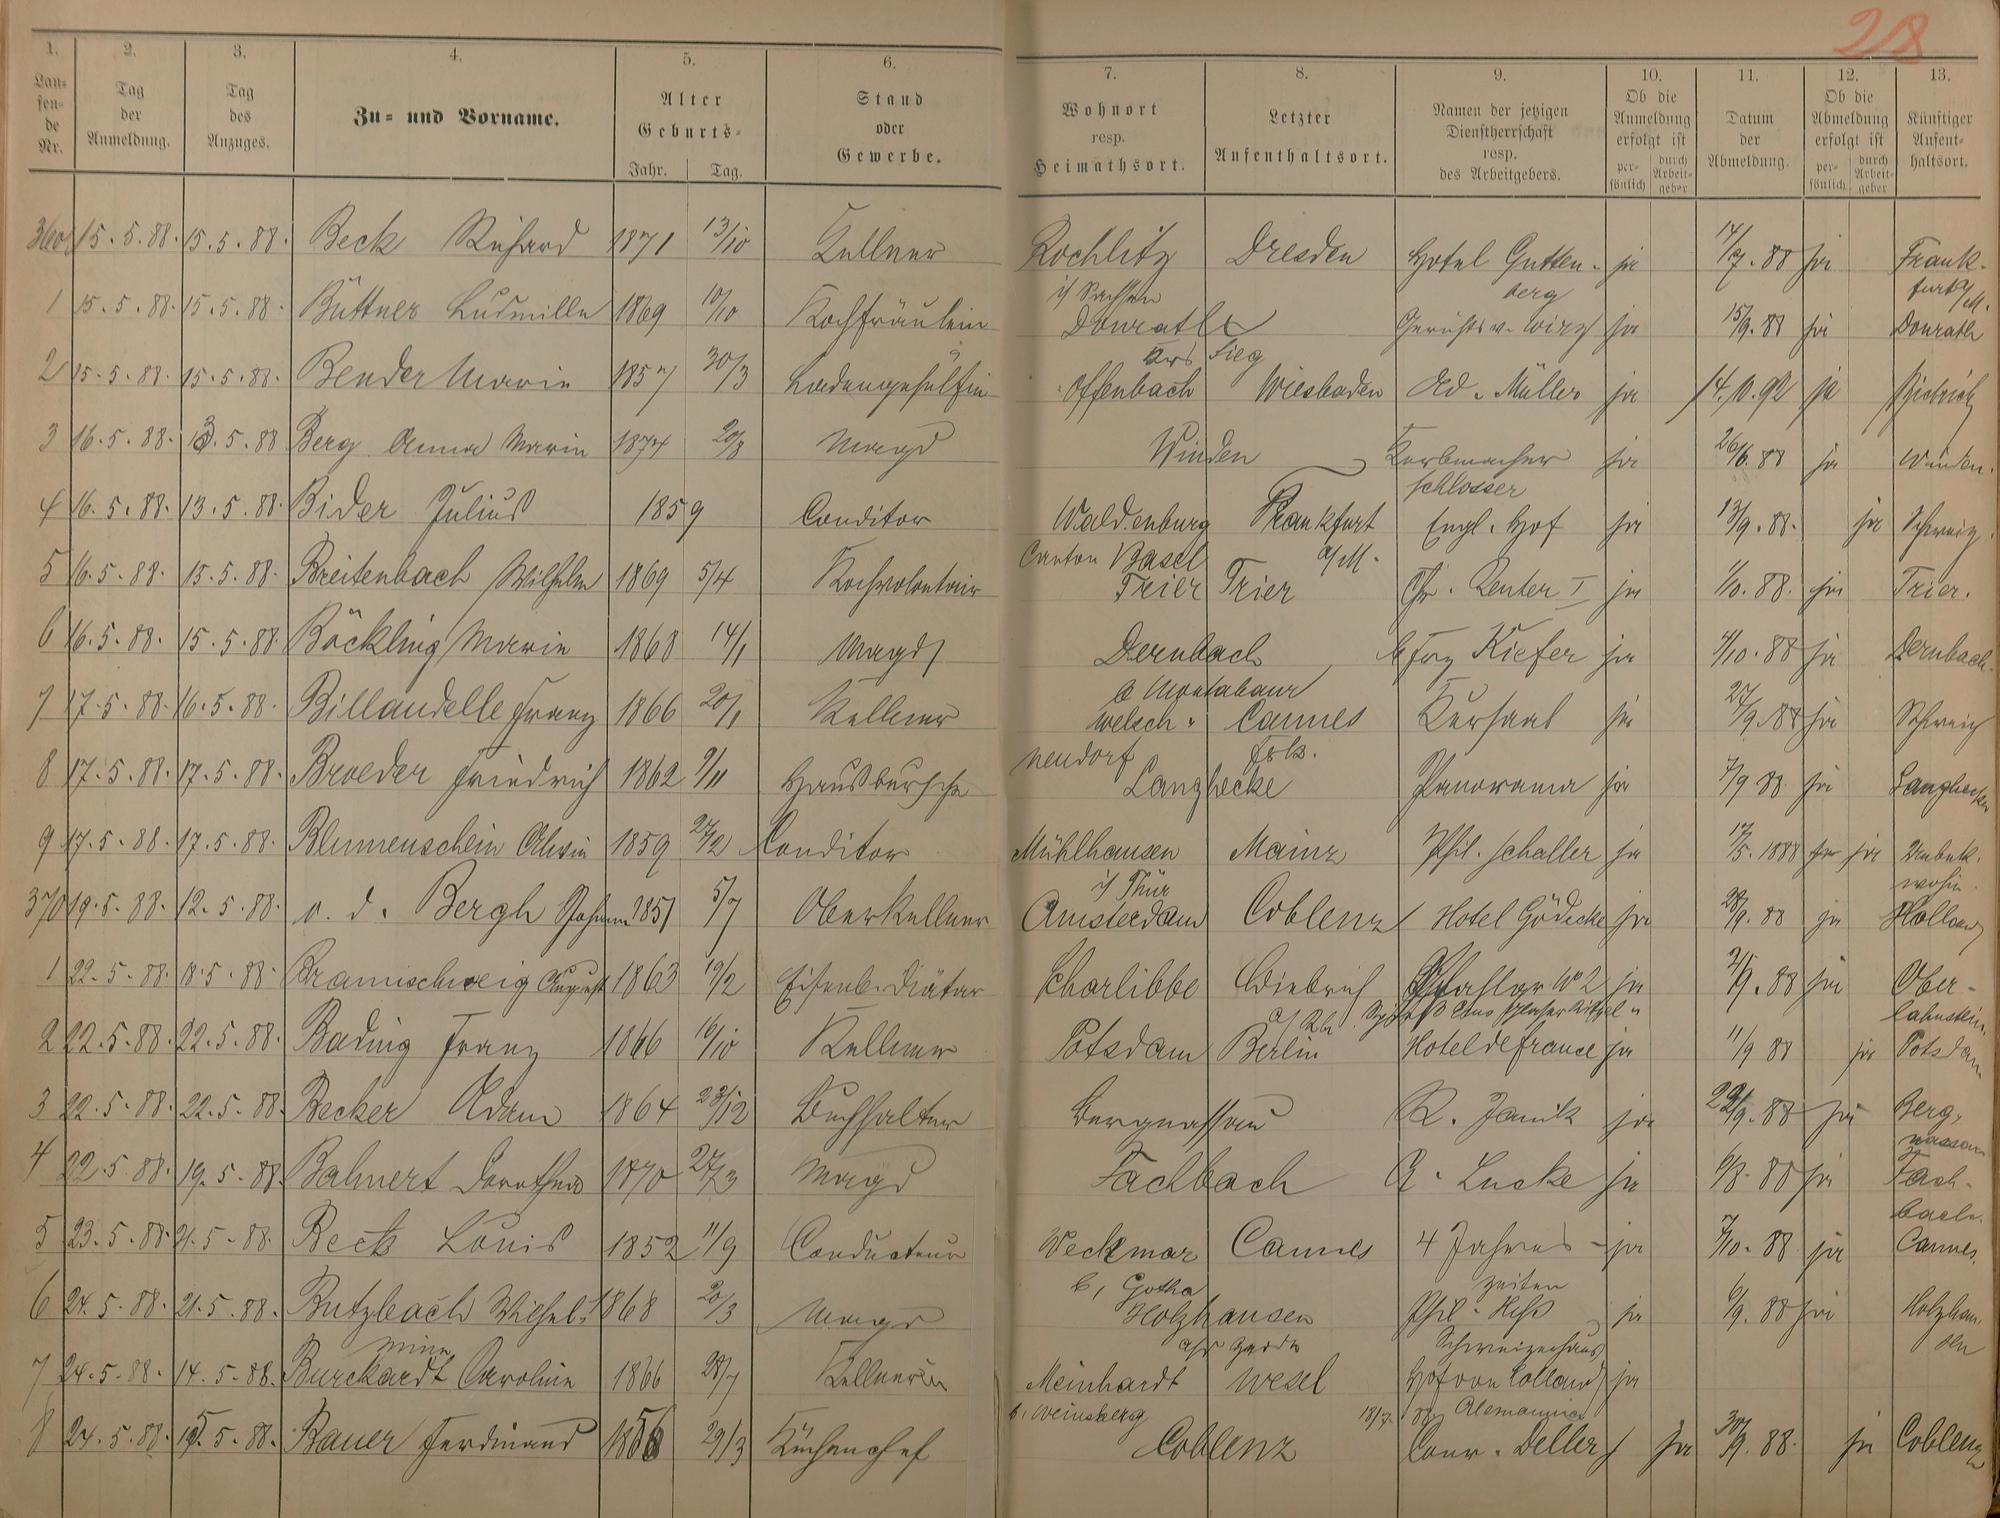 28
1. 2. 3. 4. 5. 6. 7. 8. 9. 10. 11. 12. 13.
Lau-fen-de Nr. Tag der Anmeldung. Tag des Anzuges. Zu- und Vorname. Alter Geburts- Jahr. Tag. Stand oder Gewerbe. Wohnort resp. Heimathsort. Letzter Aufenthaltsort. Namen der jetzigen Dienstherrschaft resp. des Arbeitgebers. Ob die Anmeldung erfolgt ist per-sönlich durch Arbeit-geber Datum der Abmeldung. Ob die Abmeldung erfolgt ist per-sönlich durch Arbeit-geber Künftiger Aufent-haltsort.
360 15.5.88. 15.5.88. Beck Richard 1871 13/10 Kellner Rochlitz Dresden Hotel Gutten- ja 14/9.88 ja Frank-
i/ Sachsen berg furt a/M.
1 15.5.88. 15.5.88. Büttner Ludmilla 1869 10/10 Kochfräulein Donrath Gerichtsv. Wirz ja 15/9.88 ja Donrath
Krs Sieg
2 15.5.88. 15.5.88. Bender Marie 1857 30/3 Ladengehülfin Offenbach Wiesbaden Ed. Müller ja 14.10.92 ja Biebrich
3 16.5.88. 13.5.88 Berg Anna Maria 1874 20/8 Magd Winden Korbmacher ja 26/6.88 ja Winden.
Schlosser
4 16.5.88. 13.5.88. Bider Julius 1859 Conditor Waldenburg Frankfurt Engl. Hof ja 13/9.88. ja Schweiz.
Canton Basel a/M.
5 16.5.88. 15.5.88. Breitenbach Wilhelm 1869 5/4 Kochvolontair Trier Trier Chr. Reuter I ja 1/10.88. ja Trier.
6 16.5.88. 15.5.88. Böckling Marie 1868 14/1 Magd Dernbach Kiefer ja 4/10.88 ja Dernbach.
b Montabaur
7 17.5.88. 16.5.88. Billaudelle Franz 1866 20/1 Kellner Welsch- Cannes Kursaal ja 27/9.88 ja Schweiz
neudorf Frk.
8 17.5.88. 17.5.88. Broeder Friedrich 1862 9/11 Hausbursche Langhecke Panorama ja 7/9 88 ja Langhecke
9 17.5.88. 17.5.88. Blumenschein Alwin 1859 27/2 Conditor Mühlhausen Mainz Phil. Schaller ja 17/5.1888 ja ja Unbek.
i/ Thür wohin.
370 19.5.88. 12.5.88. v. d. Bergh Johann 1851 5/7 Oberkellner Amsterdam Coblenz Hotel Gödecke ja 28/9.88 ja Holland
1 22.5.88. 18.5.88. Bramschweig August 1863 19/2 Eisenb. Diätar Scharlibbe Biebrich No 2 ja 2/9.88 ja Ober-
a/ Rh. lahnstein.
2 22.5.88. 22.5.88. Bading Franz 1866 16/10 Kellner Potsdam Berlin Hotel de france ja 11/9 88 ja Potsdam
3 22.5.88. 22.5.88. Becker Adam 1864 23/12 Buchhalter Bergnassau R. Janik ja 22/9.88 ja Berg,
nassau
4 22.5.88. 19.5.88 Bahnert Dorothea 1870 27/3 Magd Fachbach A. Lucke ja 6/8.88 ja Fach-
bach.
5 23.5.88. 21.5.88. Beck Louis 1852 11/9 Conducteur Weckmar Cannes 4 Jahres- ja 7/10.88 ja Cannes.
b, Gotha zeiten
6 24.5.88. 21.5.88. Butzbach Wilhel- 1868 20/3 Magd Holzhausen Phil. Hess ja 6/9.88 ja Holzhau-
mine a/d Haide Schweizerhaus sen
7 24.5.88. 14.5.88. Burckardt Caroline 1866 28/7 Kellnerin Meinhardt Wesel Hof von Holland ja
b, Weinsberg 18/7. 88 Alemannia
8 24.5.88. 15.5.88. Bauer Ferdinand 1856 29/3 Küchenchef Coblenz Conr. Deller ja 30/9.88. ja Coblenz